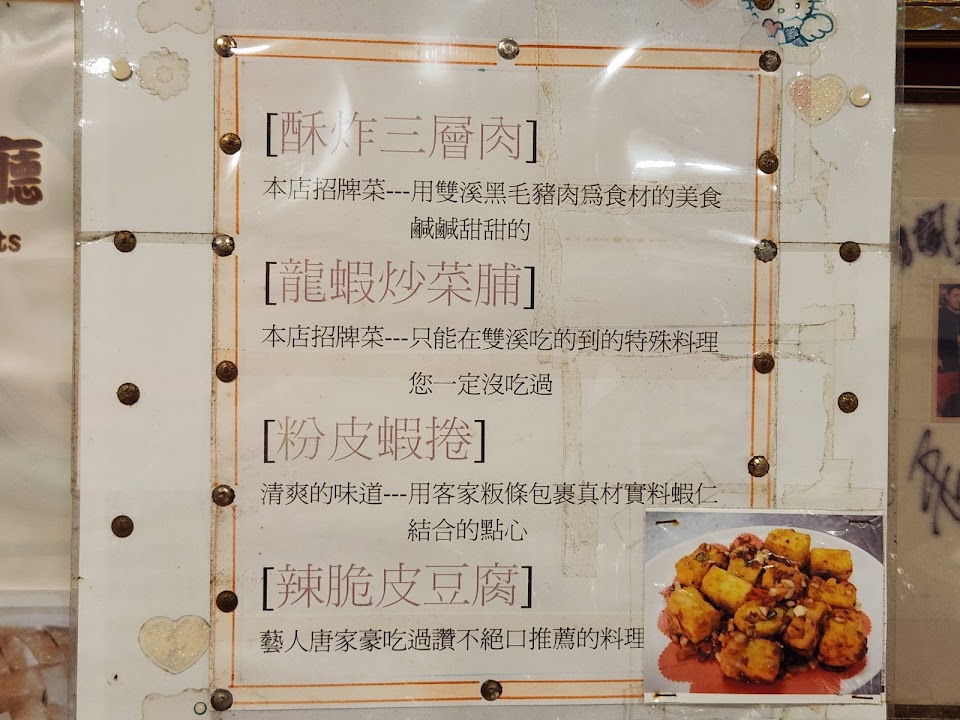 [酥炸三層肉]
本店招牌菜---用雙溪黑毛豬肉為食材的美食
鹹鹹甜甜的
[龍蝦炒菜脯]
本店招牌菜---只能在雙溪吃的到的特殊料理
您一定沒吃過
[粉皮蝦捲]
清爽的味道---用客家粄條包裹真材實料蝦仁
結合的點心
[辣脆皮豆腐]
藝人唐家豪吃過讚不絕口推薦的料理
廳
ts